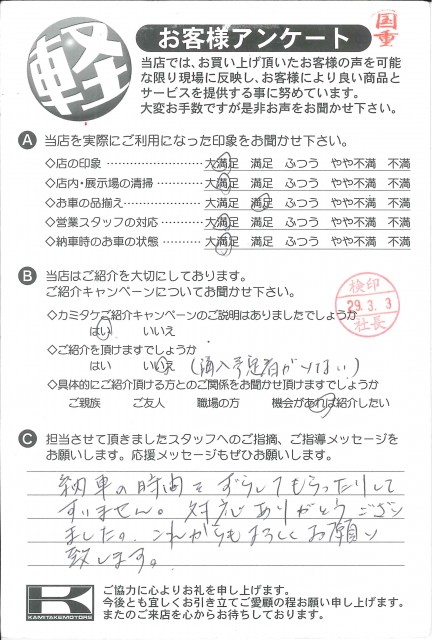 国重
軽
お客様アンケート
当店では、お買い上げ頂いたお客様の声を可能
な限り現場に反映し、お客様により良い商品と
サービスを提供する事に努めています。
大変お手数ですが是非お声をお聞かせ下さい。
A 当店を実際にご利用になった印象をお聞かせ下さい。
◇店の印象 ………………… 大満足 満足 ふつう やや不満 不満
◇店内・展示場の清掃 ………… 大満足 満足 ふつう やや不満 不満
◇お車の品揃え ……………… 大満足 満足 ふつう やや不満 不満
◇営業スタッフの対応 ………… 大満足 満足 ふつう やや不満 不満
◇納車時のお車の状態 ………… 大満足 満足 ふつう やや不満 不満
B 当店はご紹介を大切にしております。
ご紹介キャンペーンについてお聞かせ下さい。
検印
29.3.3
社長
◇カミタケご紹介キャンペーンのご説明はありましたでしょうか
はい いいえ
◇ご紹介を頂けますでしょうか
はい いいえ (購入予定者がいない)
◇具体的にご紹介頂ける方とのご関係をお聞かせ頂けますでしょうか
ご親族 ご友人 職場の方 機会があれば紹介したい
C 担当させて頂きましたスタッフへのご指摘、ご指導メッセージを
お願いします。応援メッセージもぜひお願いします。
納車の時間をずらしてもらったりして
すいません。対応ありがとうござい
ました。これからもよろしくお願い
致します。
K
KAMITAKE MOTORS
ご協力に心よりお礼を申し上げます。
今後とも宜しくお引き立てご愛顧の程お願い申し上げます。
またのご来店を心からお待ちしております。